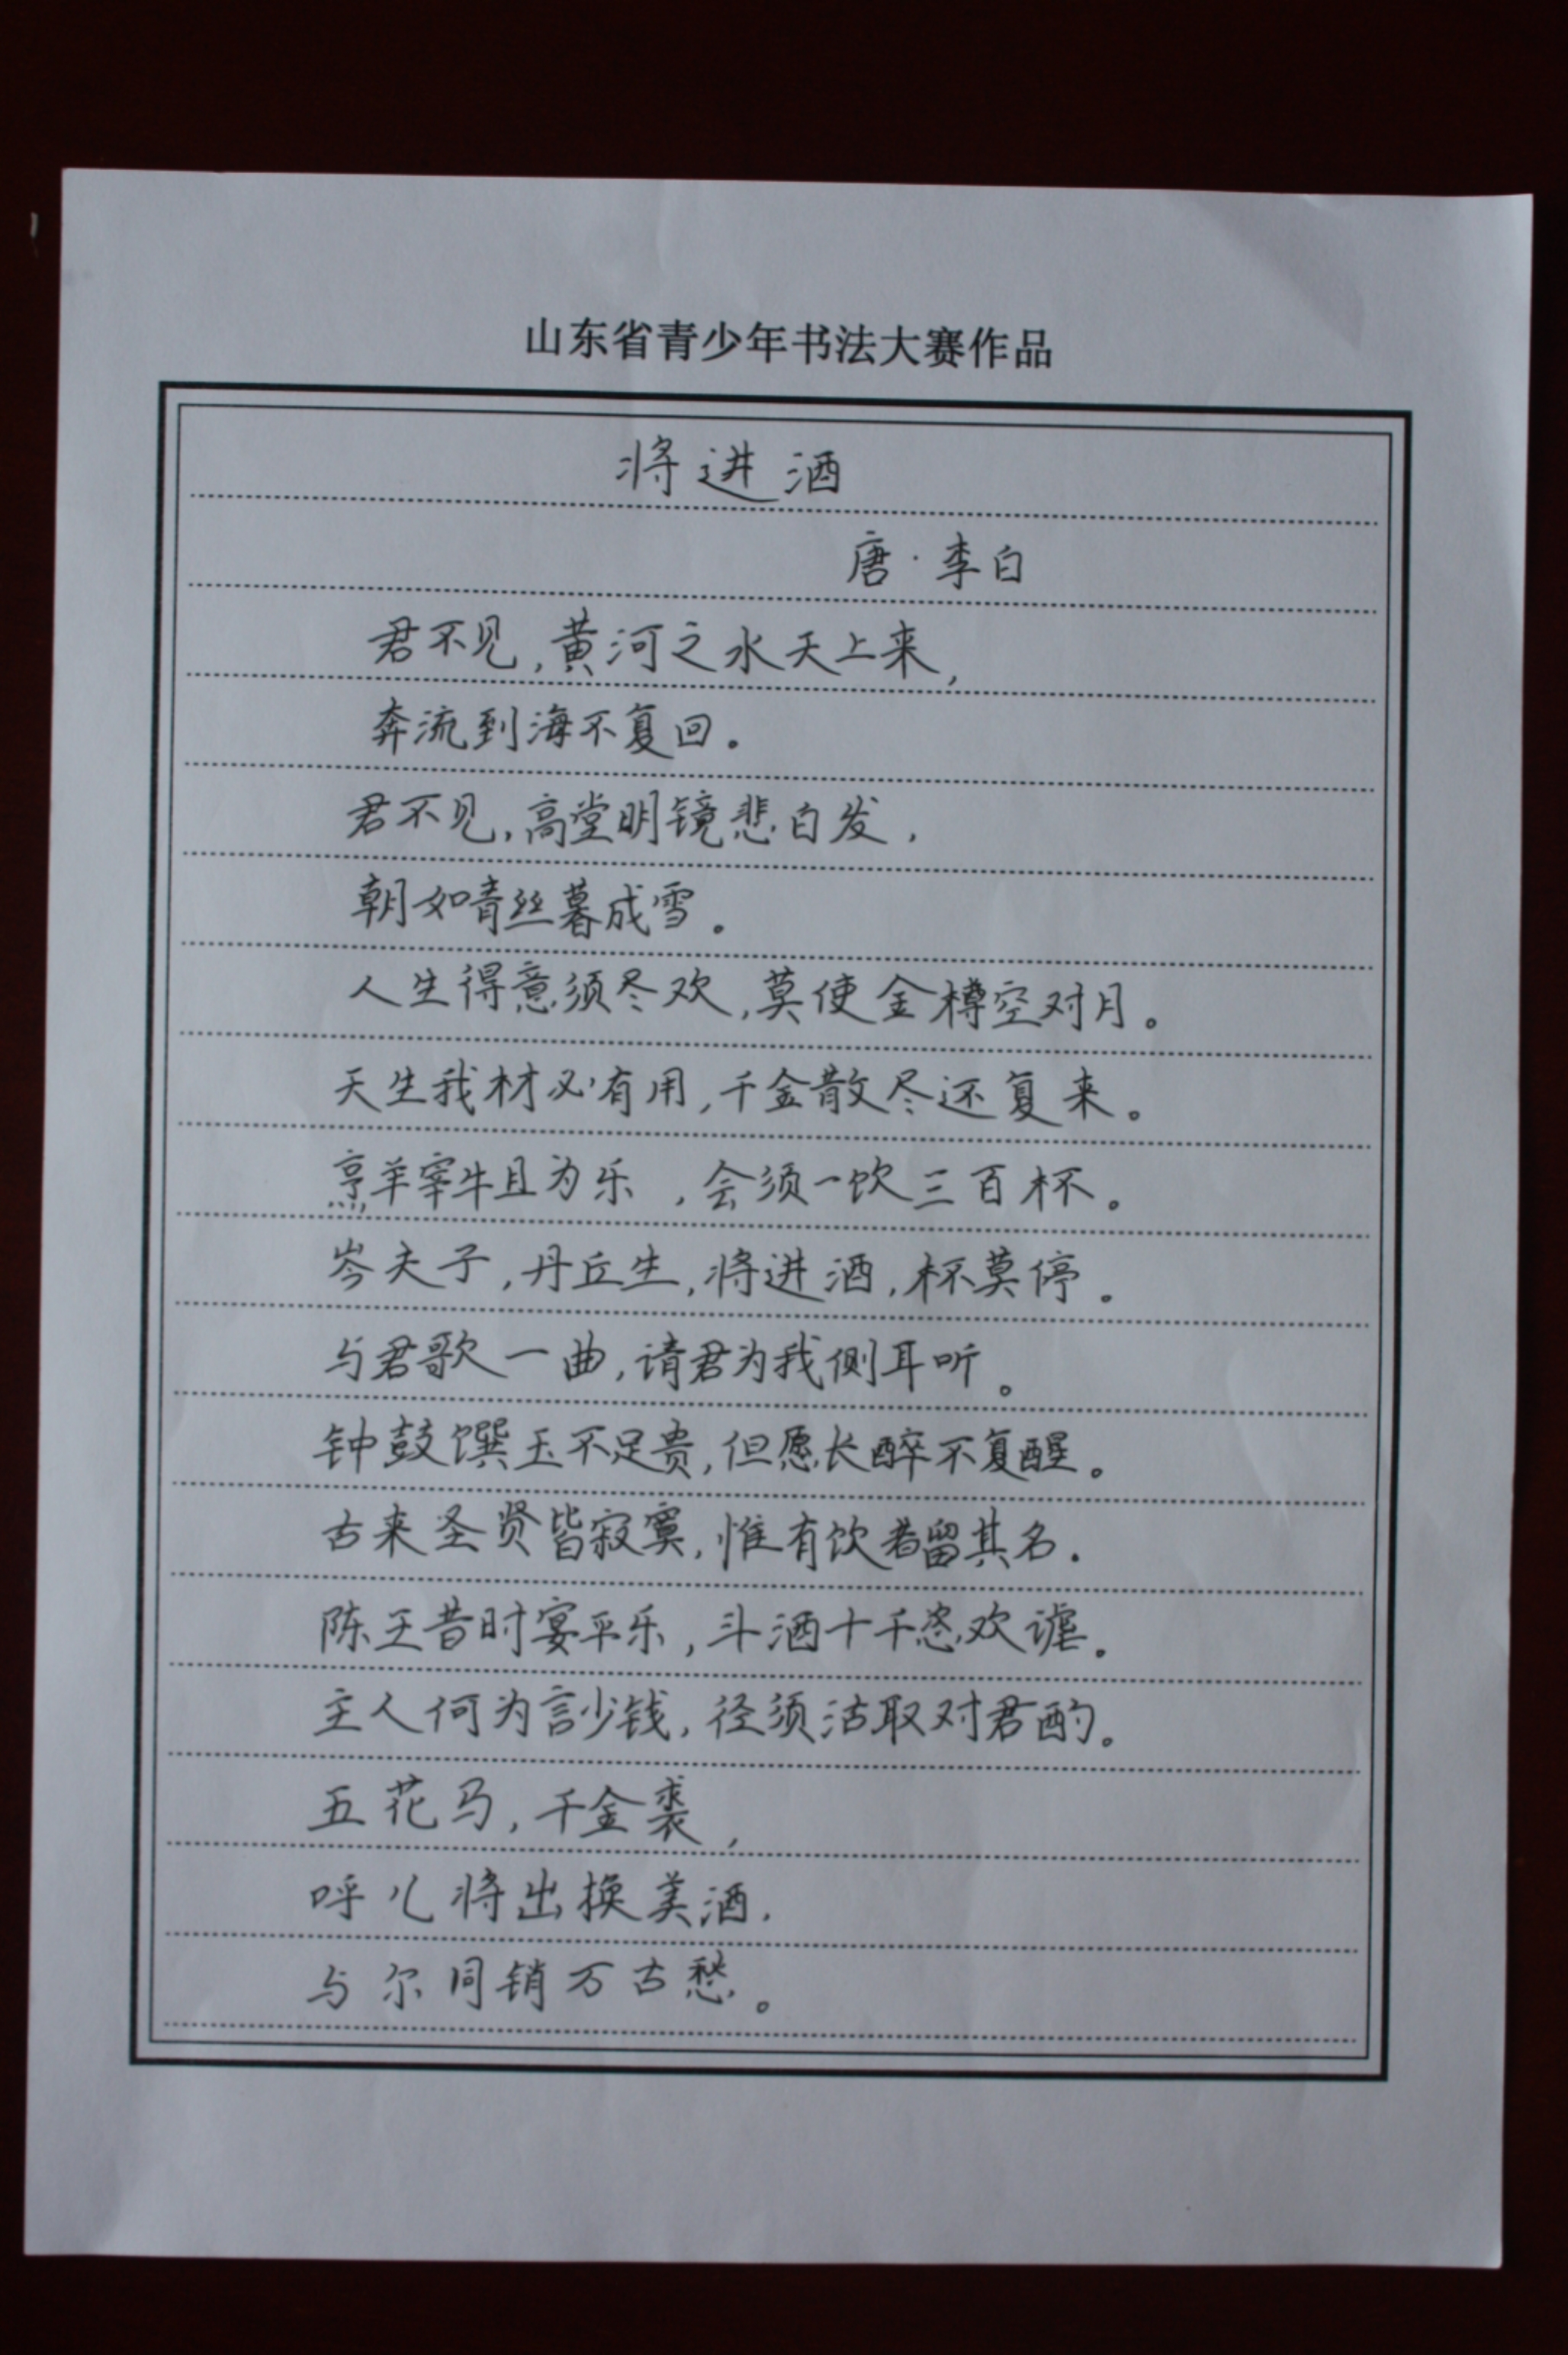 山东省青少年书法大赛作品
将进酒
唐·李白
君不见,黄河之水天上来,
奔流到海不复回。
君不见,高堂明镜悲白发,
朝如青丝暮成雪。
人生得意须尽欢,莫使金樽空对月。
天生我材必有用,千金散尽还复来。
烹羊宰牛且为乐,会须一饮三百杯。
岑夫子,丹丘生,将进酒,杯莫停。
与君歌一曲,请君为我侧耳听。
钟鼓馔玉不足贵,但愿长醉不复醒。
古来圣贤皆寂寞,惟有饮者留其名.
陈王昔时宴平乐,斗酒十千恣欢谑。
主人何为言少钱,径须沽取对君酌。
五花马,千金裘,
呼儿将出换美酒,
与尔同销万古愁。